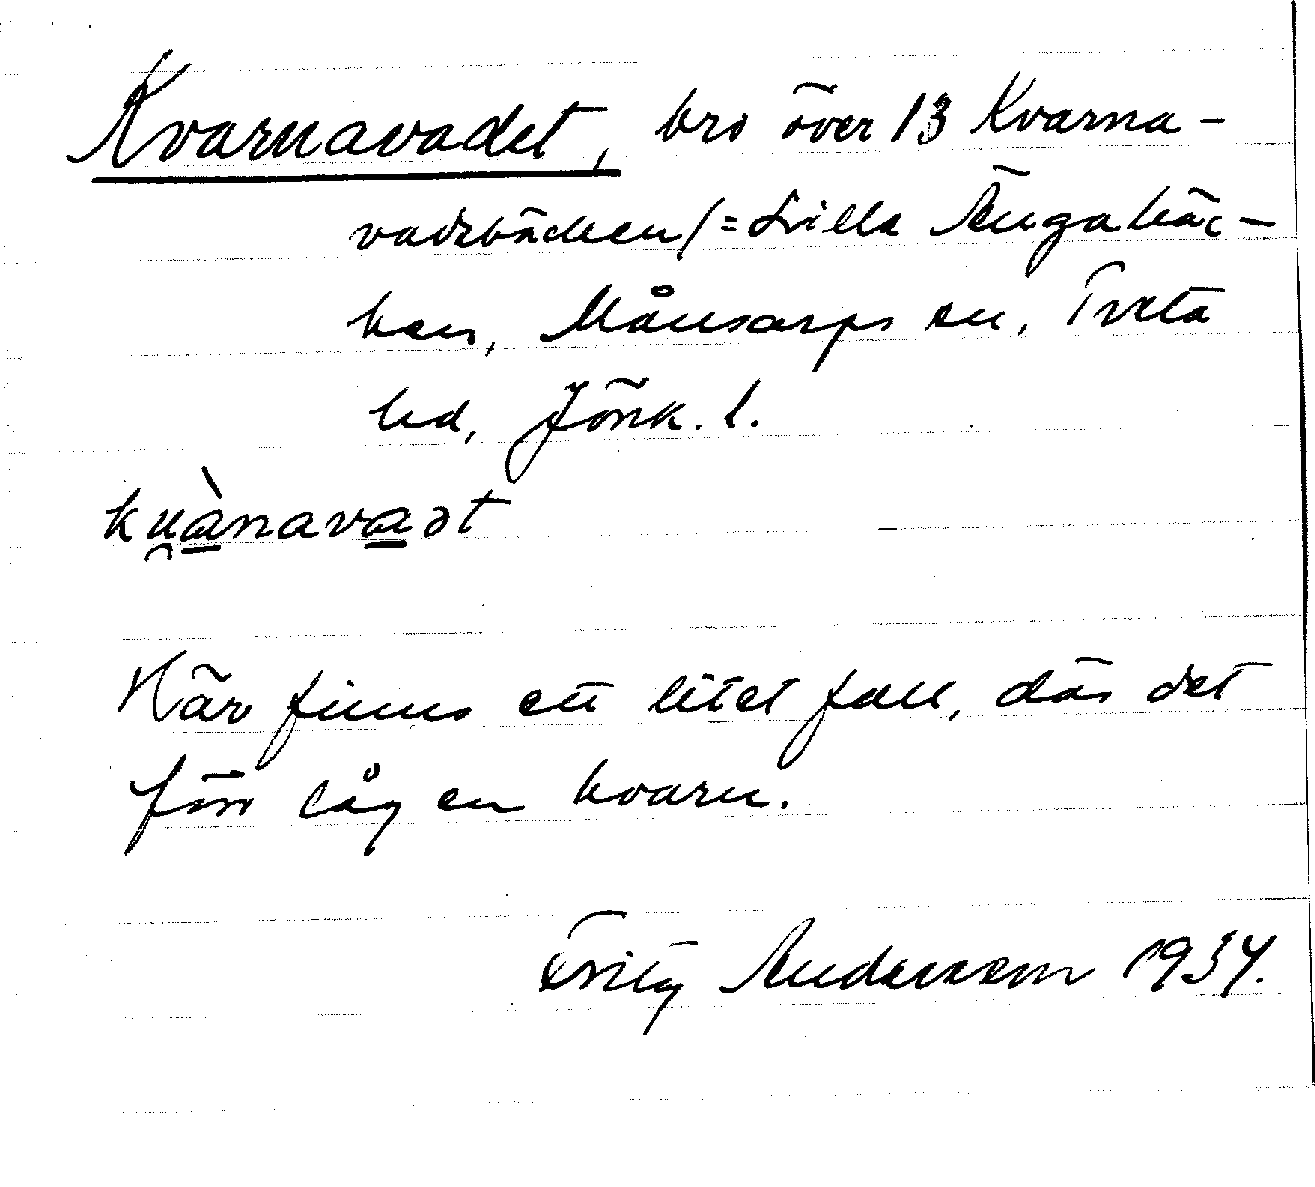 Kvarnavadet, bro över 13 Kvarna-
vadsbäcken/=Lilla Ängabäc-
ken, Månsarps sn, Tveta
hd, Jönk. l.
ku̯ànavadt
Här finns ett litet fall, där det
förr låg en kvarn.
Fritz Andersson 1934.